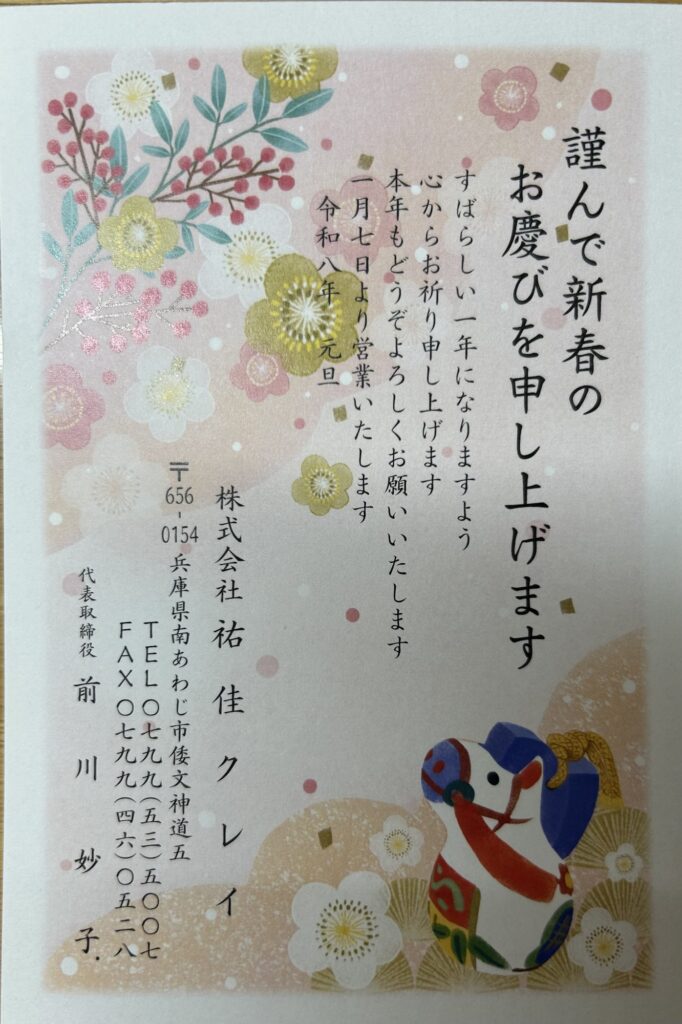 謹んで新春の
お慶びを申し上げます
すばらしい一年になりますよう
心からお祈り申し上げます
本年もどうぞよろしくお願いいたします
一月七日より営業いたします
令和八年 元旦
株式会社 祐佳クレイ
〒656-0154 兵庫県南あわじ市倭文神道五
TEL〇七九九(五三)五〇〇七
FAX〇七九九(四六)〇五二八
代表取締役 前川妙子